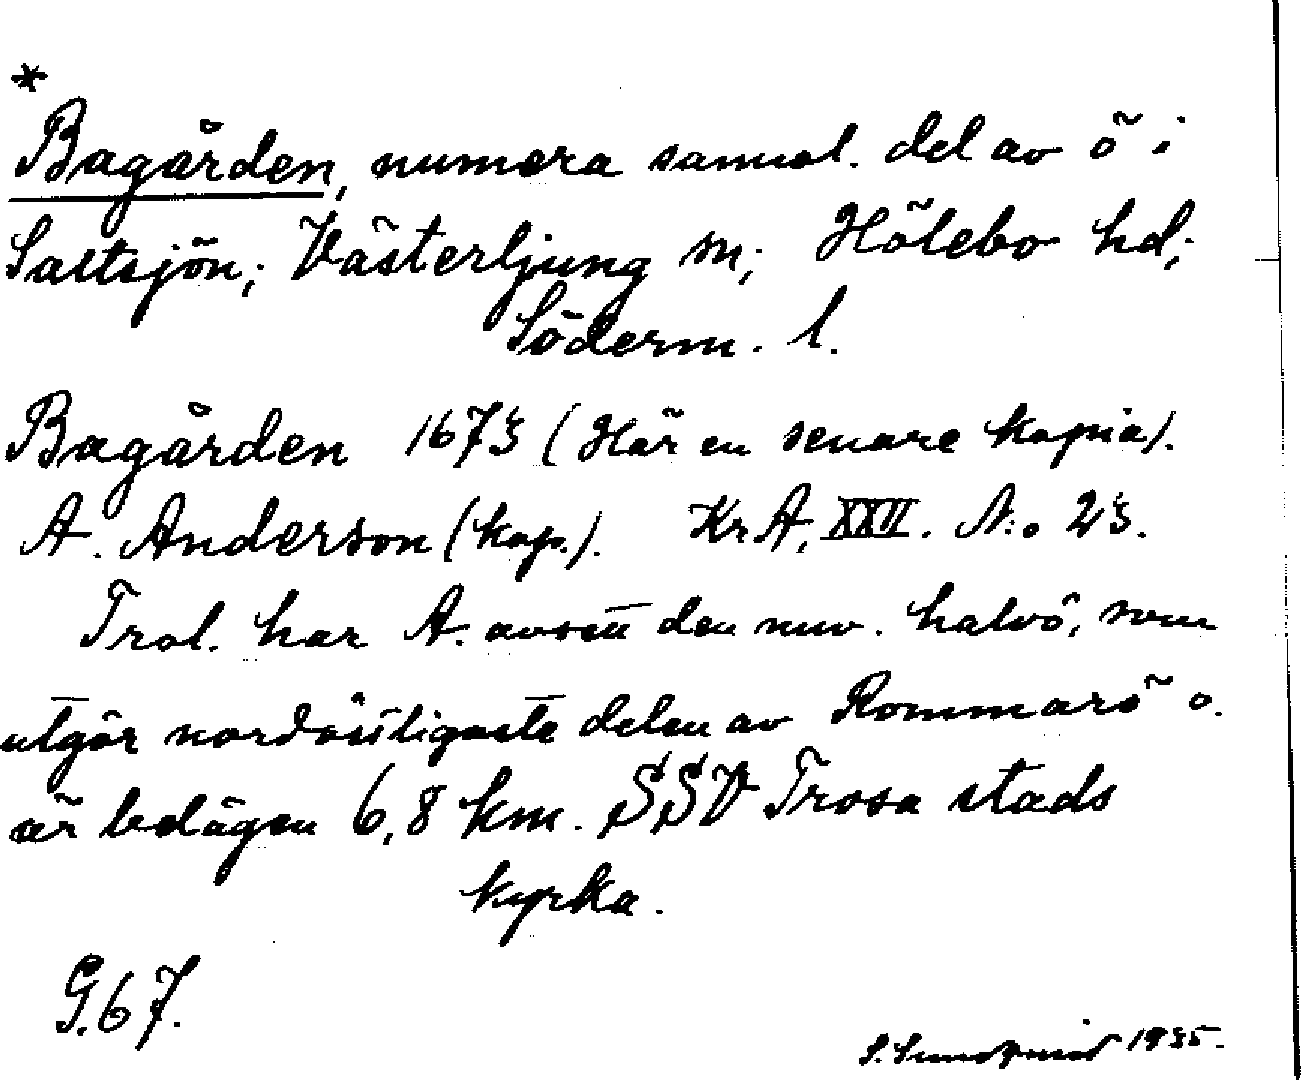 *
Bagården, numera samml. del av ö i
Saltsjön; Västerljung sn; Hölebo hd;
Söderm. l.
Bagården 1673 (Här en senare kopia).
A. Anderson (kop.). Kr.A, XXVI. N:o 23.
Trol. har A. avsett den nuv. halvö, som
utgör nordöstligaste delen av Rommarö o.
är belägen 6,8 km. SSV Trosa stads
kyrka.
G.67.
S. 1935.